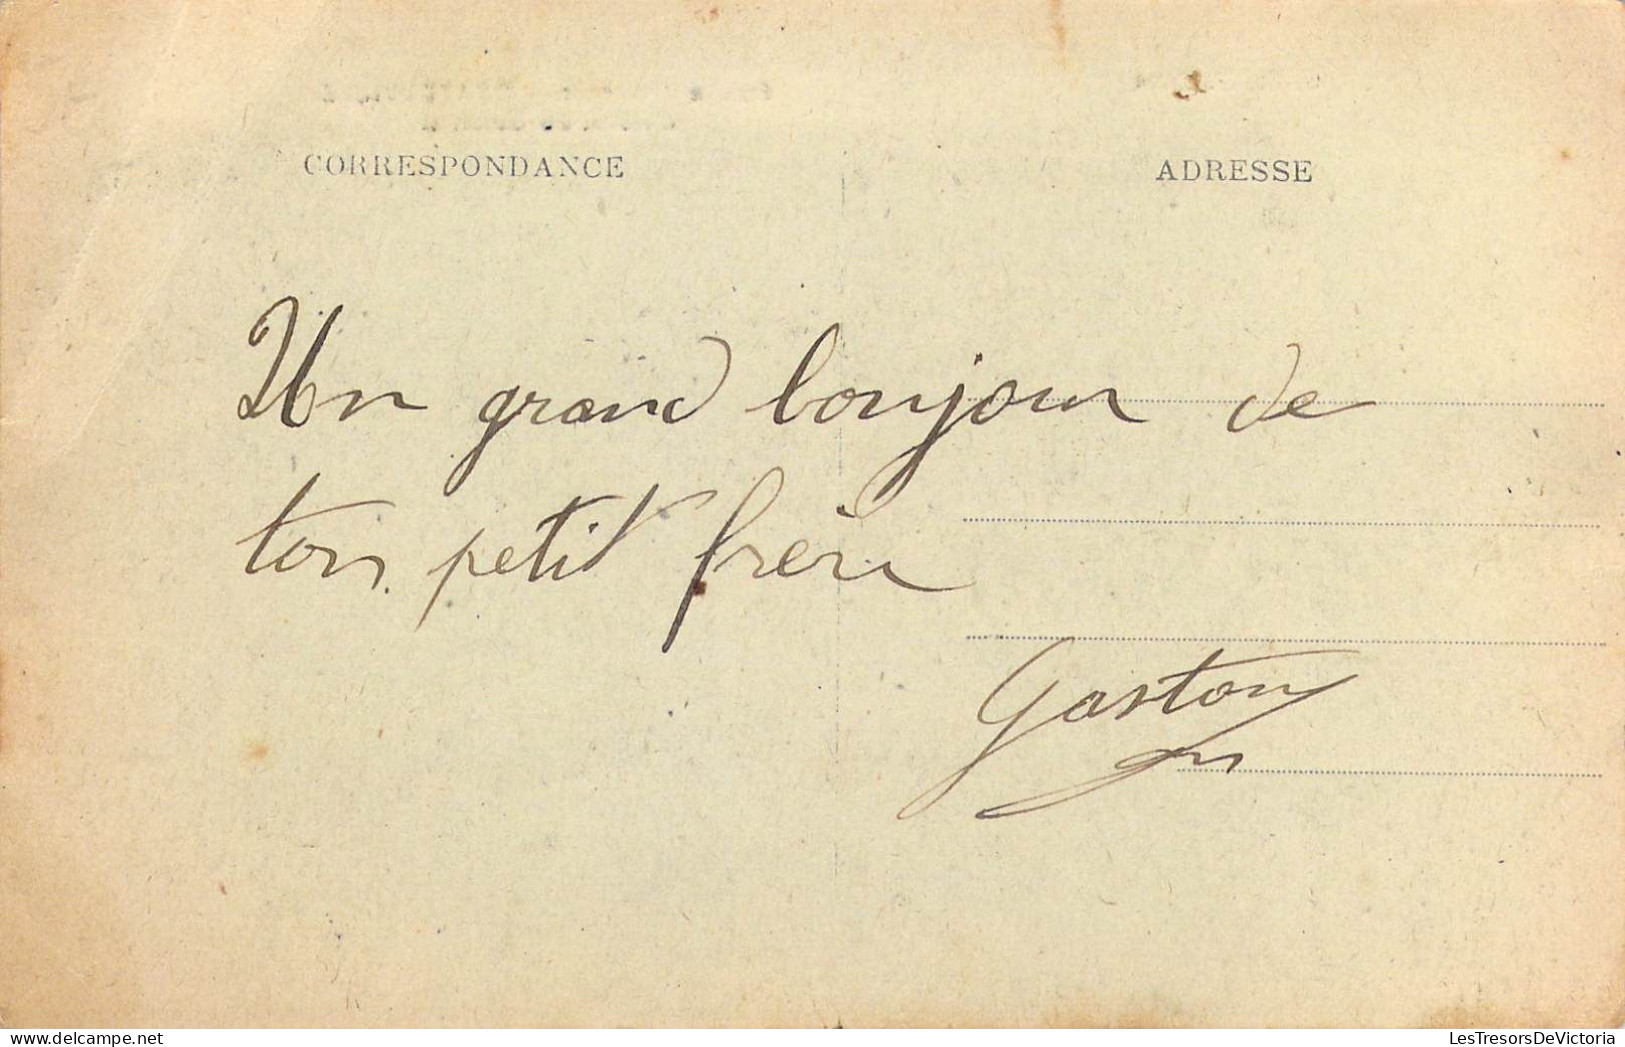 CORRESPONDANCE
ADRESSE
Un grand bonjour de
ton petit frère
Gaston
LesTresorsDeVictoria